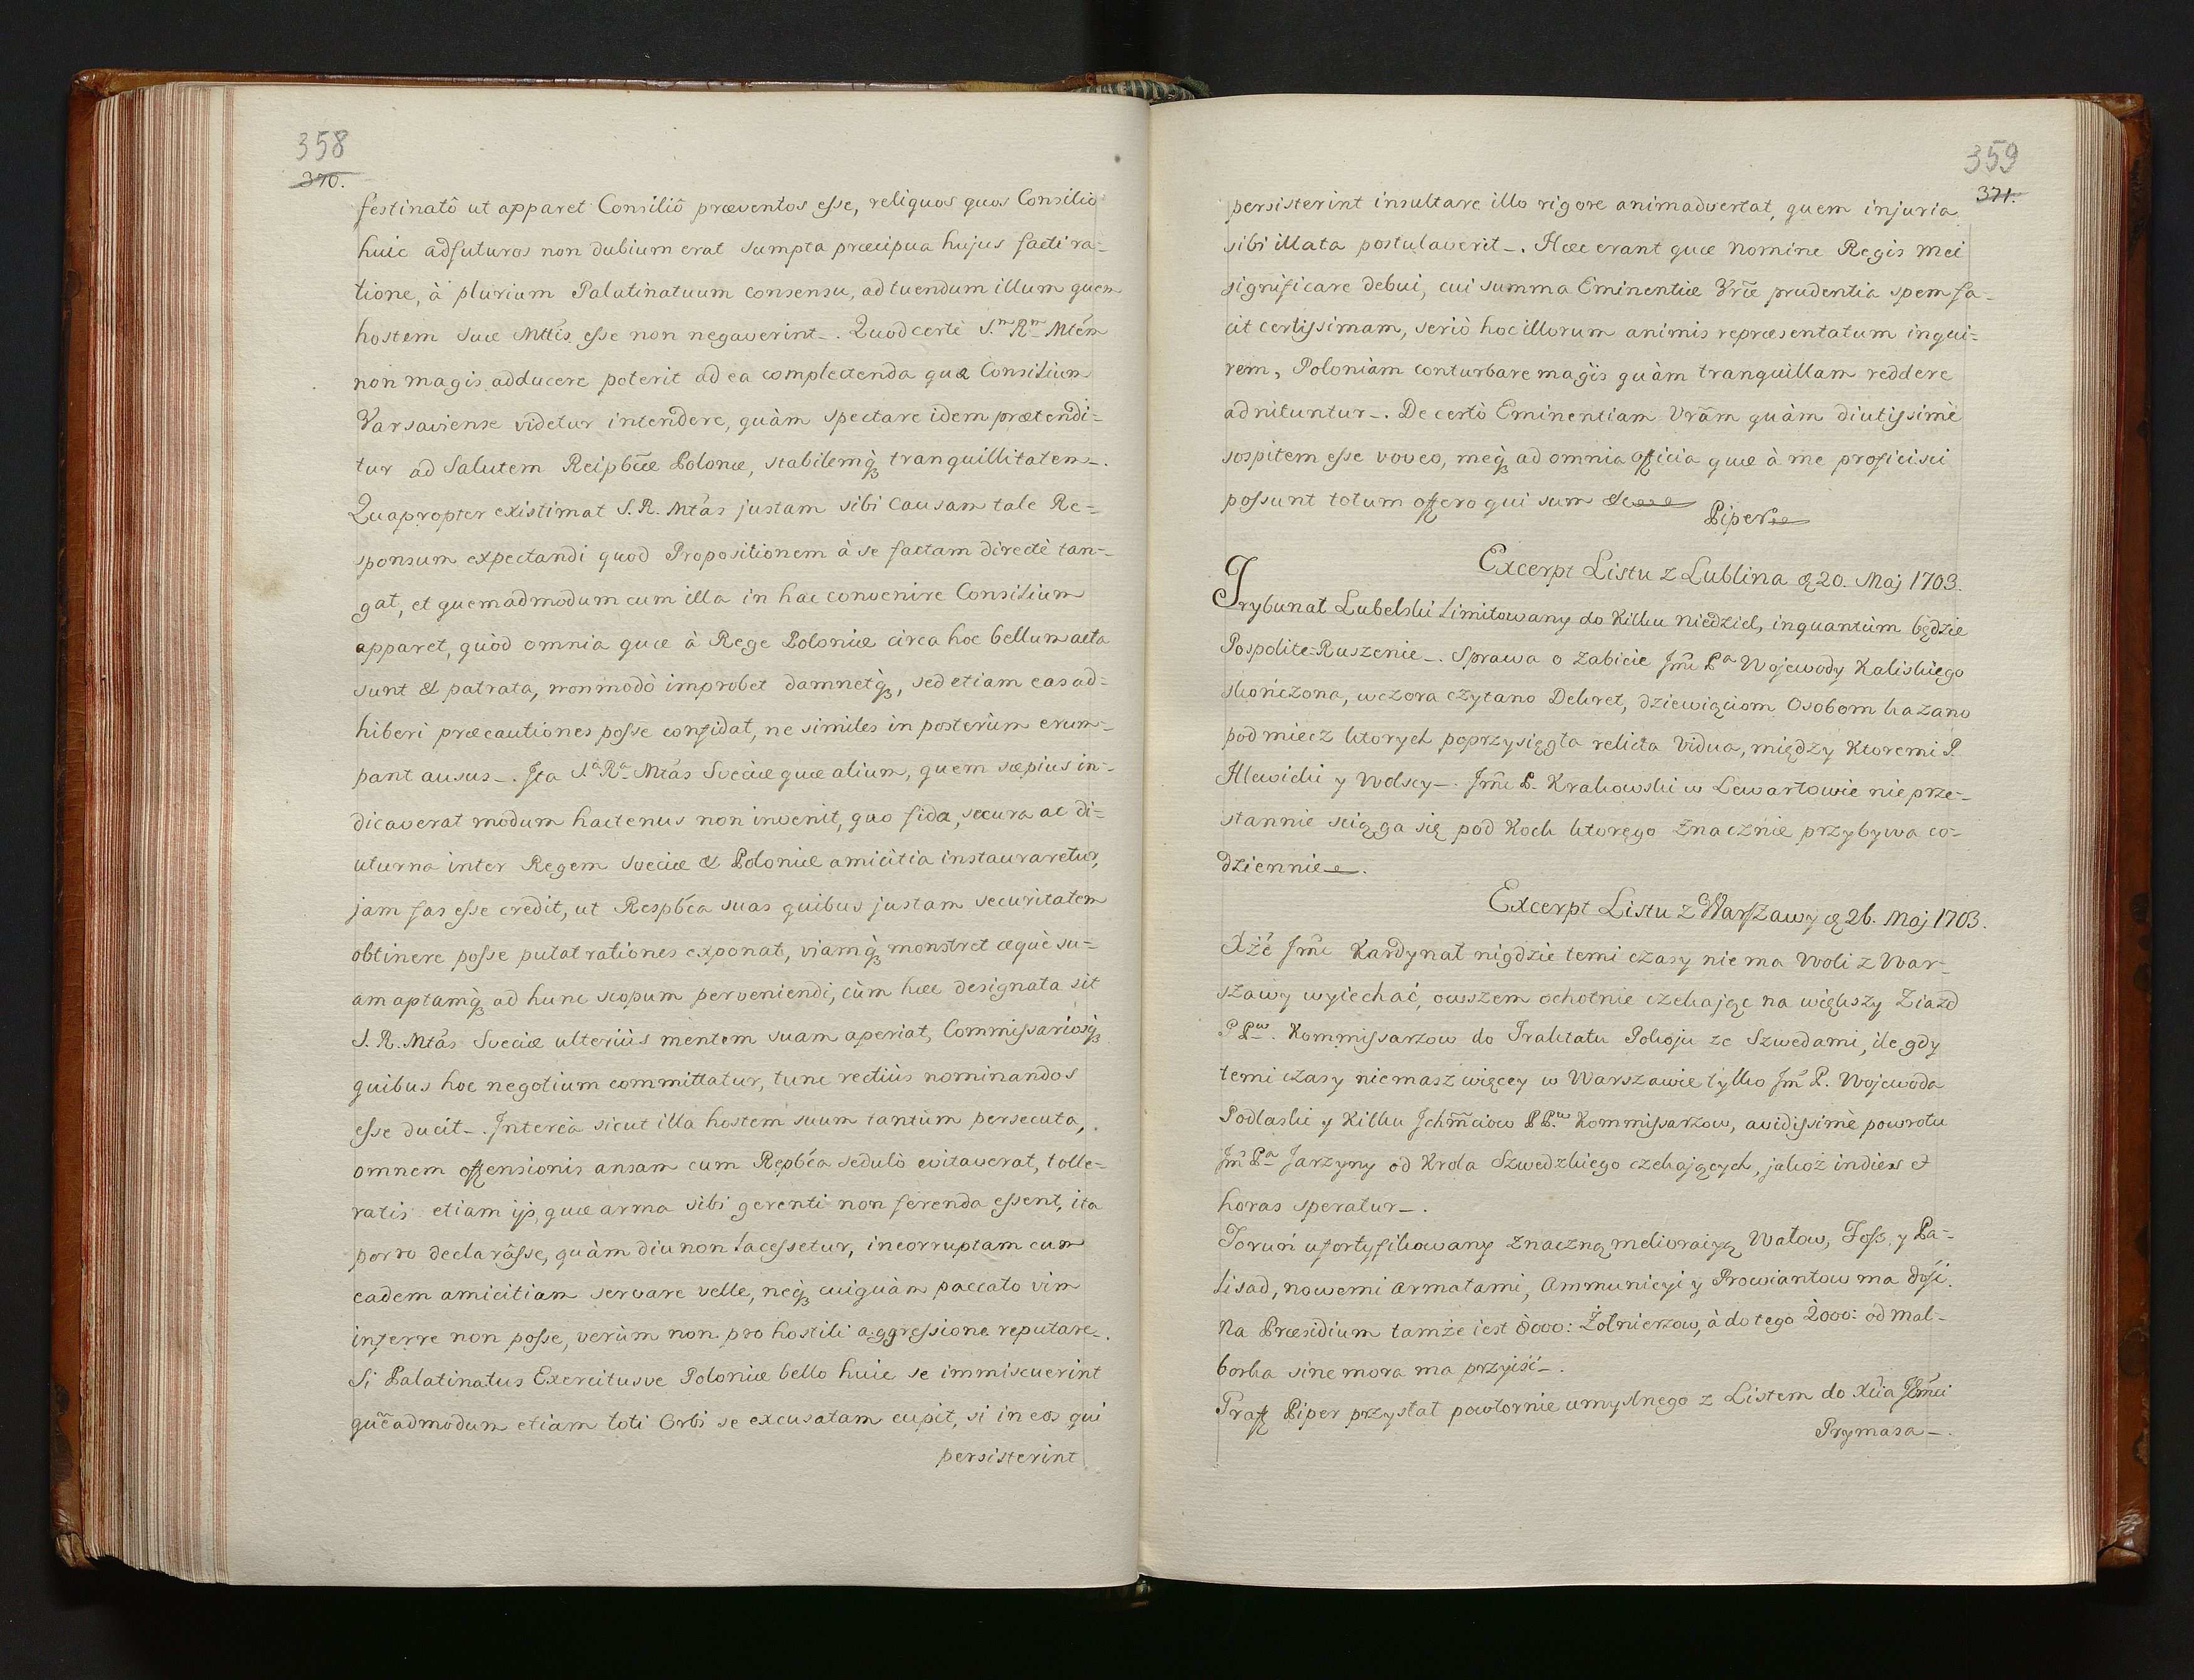 358
370.
festinatô ut apparet Consiliô præventos esse, reliquos quos Consilio
huic adfuturos non dubium erat sumpta præcipua hujus facti ra-
tione, à plurium Palatinatuum consensu, ad tuendum illum quem
hostem suæ Mttis esse non negaverint. Quod certè S.m R.m Mtem
non magis adducere poterit ad ea complectenda quæ Consilium
Varsaviense videtur intendere, quàm spectare idem prætendi-
tur ad Salutem Reipbcæ Polonæ, stabilemq3 tranquillitatem.
Quapropter existimat S. R. Mtás justam sibi Causam tale Re-
sponsum expectandi quod Propositionem à se factam directè tan-
gat, et quemadmodum cum illa in hac convenire Consilium
apparet, quòd omnia quæ à Rege Poloniæ circa hoc bellum acta
sunt & patrata, non modò improbet damnetq3, sed etiam eas ad-
hiberi præcautiones posse confidat, ne similes in posterùm erum-
pant ausus. Ita S.a R.a Mtás Sveciæ quæ alium, quem sæpius in-
dicaverat modum hactenus non invenit, quo fida, secura ac di-
uturna inter Regem Sveciæ & Poloniæ amicitia instauraretur,
jam fas esse credit, ut Respbca suas quibus justam securitatem
obtinere posse putat rationes exponat, viamq3 monstret æquè su-
am aptamq3 ad hunc scopum perveniendi, cùm hæc designata sit
S. R. Mtás Sveciæ ulteriùs mentem suam aperiat, Commissariosq3
quibus hoc negotium committatur, tunc rectiùs nominandos
esse ducit. Intereà sicut illa hostem suum tantùm persecuta,
omnem offensionis ansam cum Repbca sedulò evitaverat, tolle-
ratis etiam ijs, quæ arma sibi gerenti non ferenda essent, ita
porro declarâsse, quàm diu non lacessetur, incorruptam cum
eadem amicitiam servare velle, neq3 cuiquàm paccato vim
inferre non posse, verùm non pro hostili aggressione reputare.
Si Palatinatus Exercitusve Poloniæ bello huic se immiscuerint
quẽadmodum etiam toti Orbi se excusatam cupit, si in eos qui
persisterint
359
371.
persisterint insultare illo rigore animadvertat, quem injuria
sibi illata postulaverit. Hæc erant quæ Nomine Regis mei
significare debui, cui summa Eminentiæ Vræ prudentia spem fa-
cit certissimam, seriò hoc illorum animis repræsentatum inqui-
rem, Poloniam conturbare magis quàm tranquillam reddere
adnituntur. De certò Eminentiam Vrãm quàm diutissimè
sospitem esse voveo, meq3 ad omnia officia quæ à me proficisci
possunt totum offero qui sum &c
Piper
Excerpt Listu z Lublina d 20. Maj 1703.
Trybunał Lubelski limitowany do kilku niedziel, inquantùm będzie
Pospolite-Ruszenie. Sprawa o zabicie Jmc Pa Wojewody Kaliskiego
skończona, wczora czytano Dekret, dziewiąciom Osobom kazano
pod miecz ktorych poprzysięgła relicta Vidua, między ktoremi P.
Hlewicki y Wolscy. Jmc P. Krakowski w Lewartowie nie prze-
stannie sciąga się pod Koch ktorego znacznie przybywa co-
dziennie.
Excerpt Listu z Warszawy d 26. Maj 1703.
Xżẽ Jmc Kardynał nigdzie temi czasy nie ma Woli z War-
szawy wyiechać, owszem ochotnie czekając na większy Ziazd
P Pw. Kommissarzow do Traktatu Pokoju ze Szwedami, ile gdy
temi czasy niemasz więcey w Warszawie tylko Jm P. Wojewoda
Podlaski y kilku Jchmciow P P.w Kommissarzow, avidissimè powrotu
Jm Pa Jarzyny od Krola Szwedzkiego czekających, jakoż in dies et
horas speratur.
Toruń ufortyfikowany znaczną melioracyą Wałow, Foss, y Pa-
lisad, nowemi armatami, Ammunicyi y Prowiantow ma dosić.
Na Præsidium tamże iest 8000: Żołnierzow, à do tego 2000: od Mal-
borka sine mora ma przyiść.
Graff Piper przysłał powtornie umyslnego z Listem do Xcia Jmci
Prymasa.